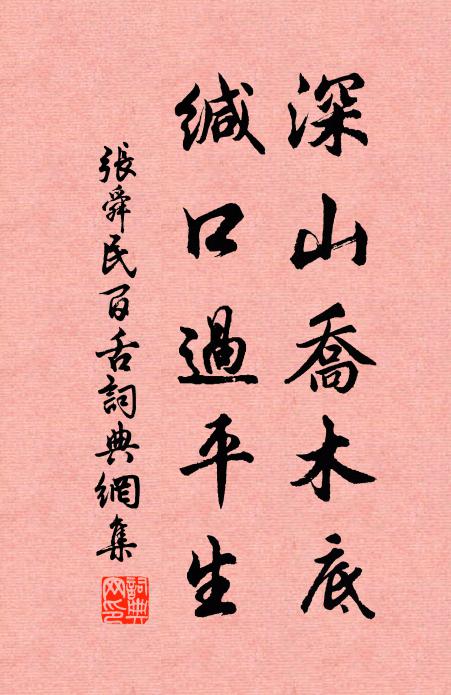 深山喬木底
緘口過平生
張舜民百舌詞典網集
詞典網印